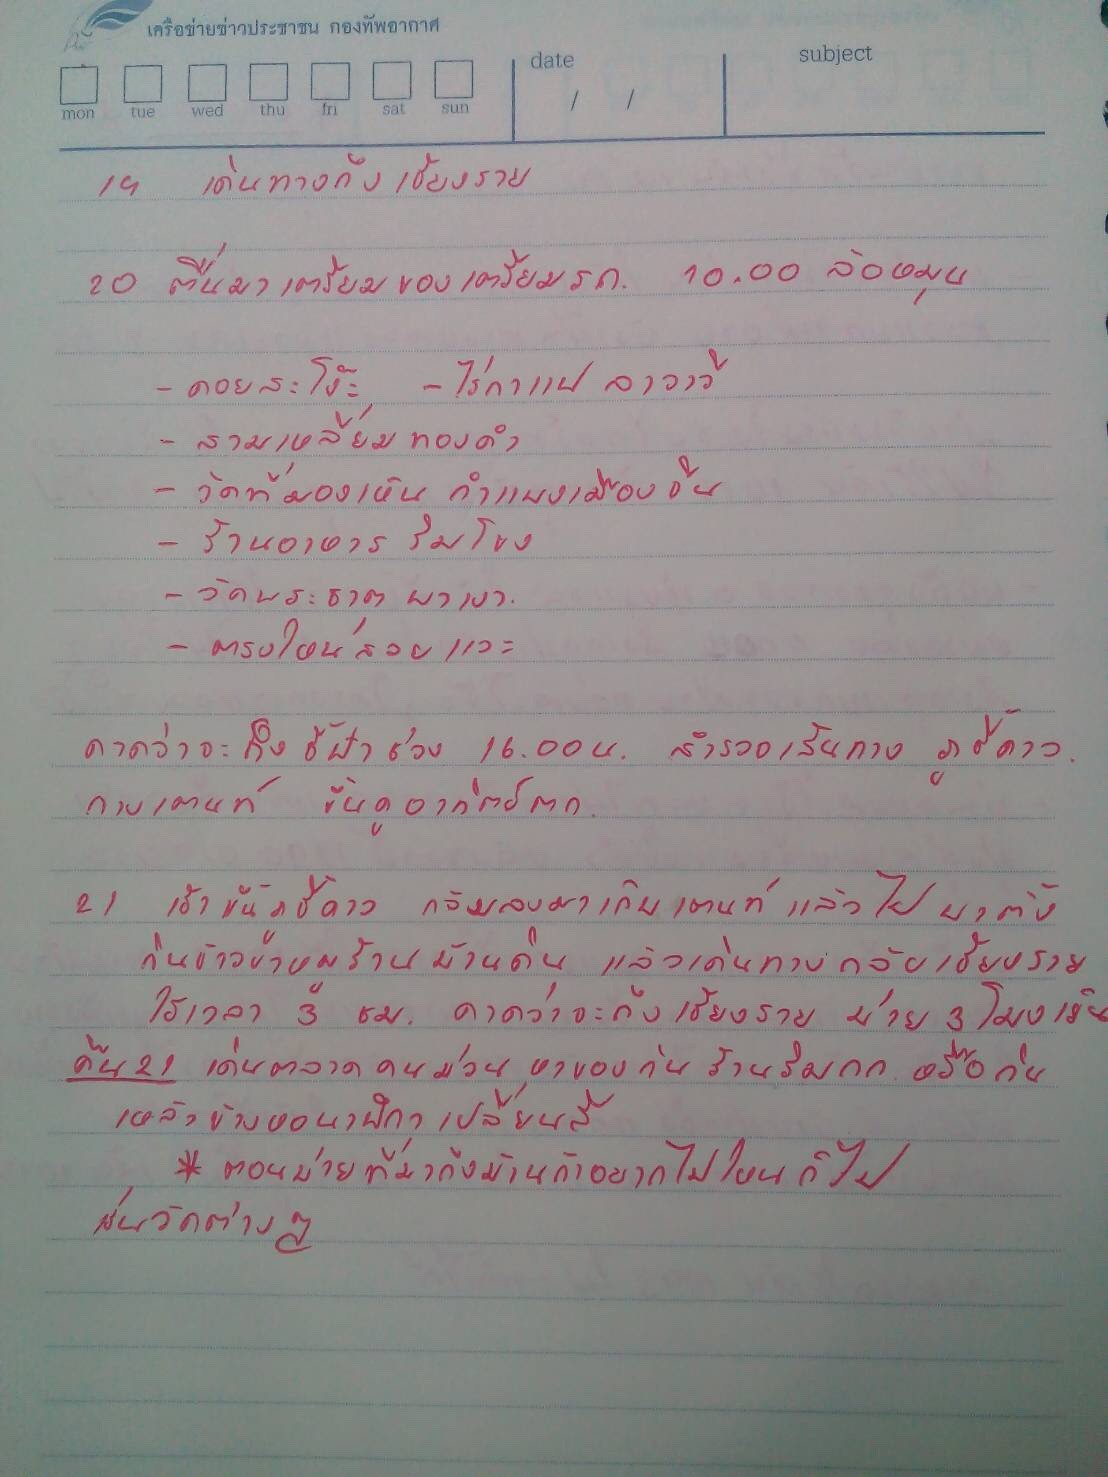 เครือข่ายข่าวประชาชน กองทัพอากาศ
mon tue wed thu fri sat sun date / / subject
19 เดินทางถึง เชียงราย
20 ตื่นมาเตรียมของเตรียมรถ. 10.00 ล้อหมุน
- ดอยสะโง้ะ - ไร่กาแฟ ลาวาวี
- สามเหลี่ยมทองคำ
- วัดที่มองเห็น กำแพงเมืองจีน
- ร้านอาหาร ริมโขง
- วัดพระธาตุ ผาเงา.
- ตรงไหนสวยแวะ
คาดว่าจะถึง ชี้ฟ้าช่วง 16.00น. สำรวจเส้นทาง ภูชี้ดาว.
กางเตนท์ ขึ้นดูอาทิตย์ตก.
21 เช้าขึ้นภูชี้ดาว กลับลงมาเก็บเตนท์ แล้วไป ผาตั้ง
กินข้าวขาหมูร้านบ้านดิน แล้วเดินทางกลับเชียงราย
ใช้เวลา 3 ชม. คาดว่าจะถึงเชียงราย บ่าย 3 โมงเย็น
คืน21 เดินตลาดคนม่วน หาของกิน ร้านริมกก หรือกิน
เหล้าข้างหอนาฬิกาเปลี่ยนสี
* ตอนบ่ายที่มาถึงบ้านถ้าอยากไปไหนก็ไป
เช่นวัดต่างๆ